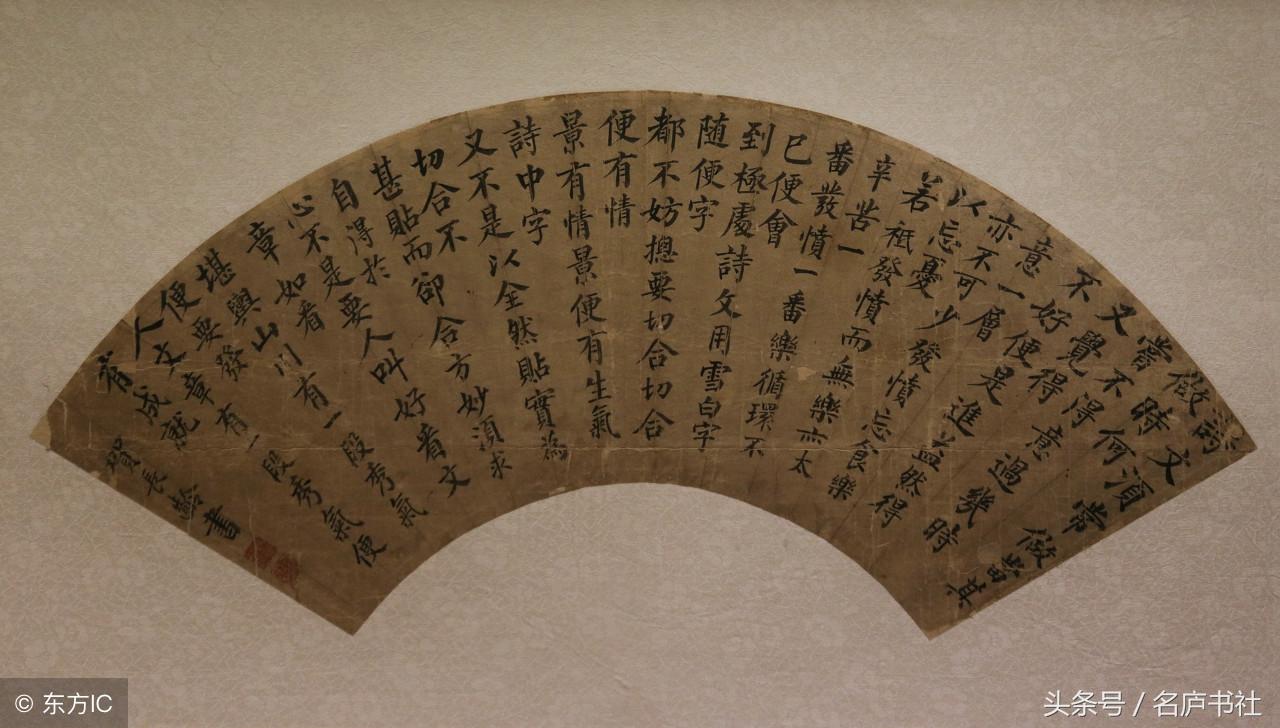 詩文須常做當其
做時何
嘗不得意過幾時
又覺得
不好便是進益然得
意一層
亦不可少發憤忘食樂
以忘憂
若祇發憤而無樂亦太
辛苦一
番發憤一番樂循環不
已便會
到極處詩文用雪白字
随便字
都不妨摠要切合切合
便有情
景有情景便有生氣
詩中字
又不是以全然貼實為
切合不
甚貼而卻合方妙須求
自得於
心不是要人叫好看文
章如看
堪輿山川有一段秀氣
便要發
人文章有一段秀氣便
有成就
賀長齡書
© 东方IC
头条号 / 名庐书社